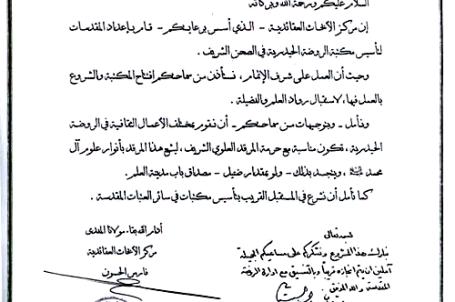 السلام عليكم ورحمة الله وبركاته
إن مركز الأبحاث العقائدية - الذي أسس برعايتكم - قام بإعداد المقدمات
لتأسيس مكتبة الروضة الحيدرية في الصحن الشريف .
وحيث أن العمل على شرف الإتمام، نستأذن من سماحتكم افتتاح المكتبة والشروع
بالعمل فيها، لاستقبال رواد العلم والفضيلة .
ونأمل - وبتوجيهات من سماحتكم - أن نقوم بمختلف الأعمال الثقافية في الروضة
الحيدرية، تكون مناسبة مع حرمة المرقد العلوي الشريف، ليشع هذا المرقد بأنوار علوم آل
محمد ، ويتجسد بذلك - ولو بمقدار ضئيل - مصداق باب مدينة العلم .
كما نأمل أن نشرع في المستقبل القريب بتأسيس مكتبات في سائر العتبات المقدسة .
أدام الله بقاء مولانا المفدى
مركز الأبحاث العقائدية
فارس الحسون
بسمه تعالى
نبارك هذا المشروع ونشكركم على مساعيكم الجميلة
آملين ان يتم انجازه قريباً وبالتنسيق مع ادارة الروضة
المقدسة والله الموفق